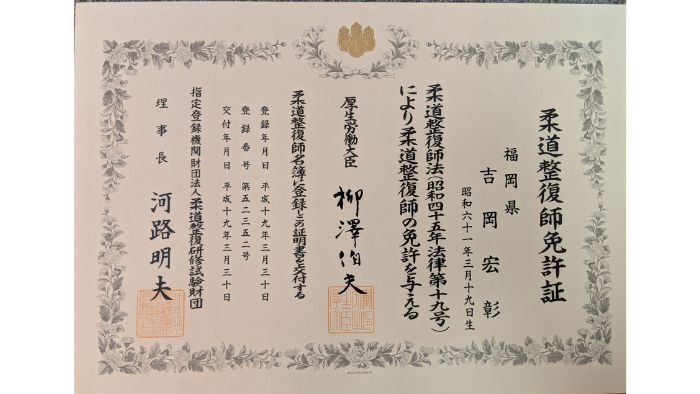 柔道整復師免許証
福岡県
吉岡宏彰
昭和六十一年三月十九日生
柔道整復師法(昭和四十五年法律第十九号)
により柔道整復師の免許を与える
厚生労働大臣 柳澤伯夫
柔道整復師名簿に登録しこの証明書を交付する
登録年月日 平成十九年三月三十日
登録番号 第五二三五二号
交付年月日 平成十九年三月三十日
指定登録機関財団法人柔道整復研修試験財団
理事長 河路明夫